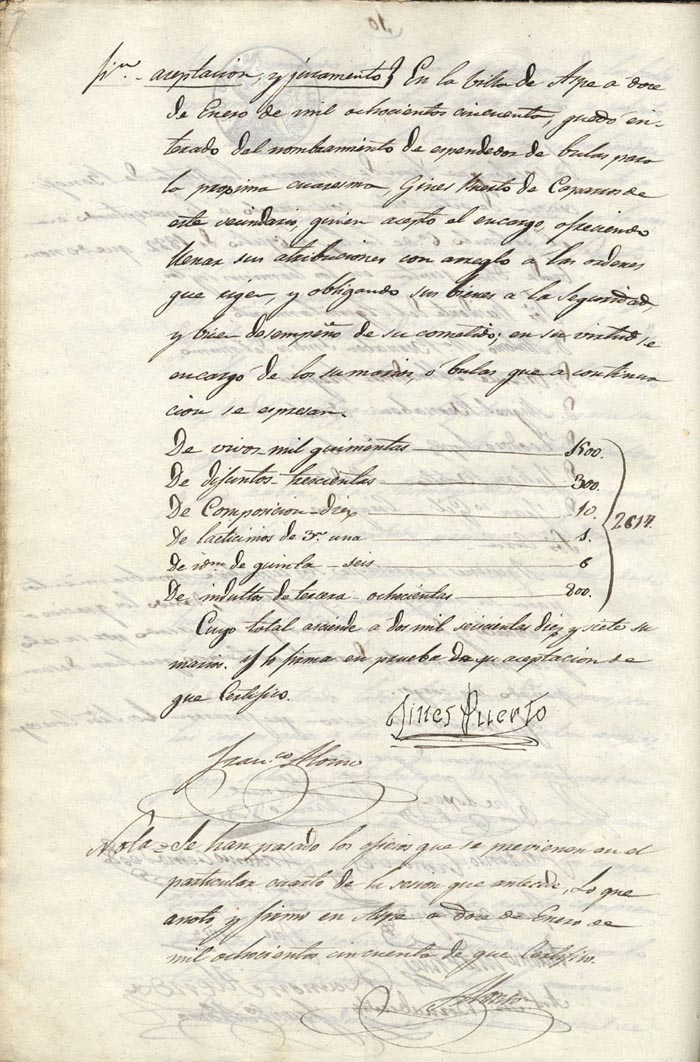 10
aceptacion, y juramento} En la billa de Aspe a doce
de Enero de mil ochocientos cincuenta, quedó en-
terado del nombramiento de espendedor de bulas para
la proxima cuaresma Gines Puerto de Caparros de
este vecindario, quien acepto el encargo, ofreciendo
llenar sus atribuciones con arreglo a las ordenes
que rigen, y obligando sus bienes a la seguridad,
y buen desempeño de su cometido; en su virtud se
encargó de los sumarios, o bulas que a continua
cion se espresan.
De vivos mil quinientas 1500.
De difuntos trescientas 300.
De Composicion diez 10.
De lacticinios de 3ª una 1.
De idm. de quinta seis 6
De indultos de tercera ochocientas 800.
2617.
Cuyo total asciende a dos mil seiscientas diez y siete su
marios. Y lo firma en prueba de su aceptacion de
que Certifico.
Gines Puerto
Franco
Nota = Se han pasado los oficios que se previenen en el
particular cuarto de la sesion que antecede, Lo que
anoto y firmo en Aspe a doce de Enero de
mil ochocientos cincuenta de que Certifico.